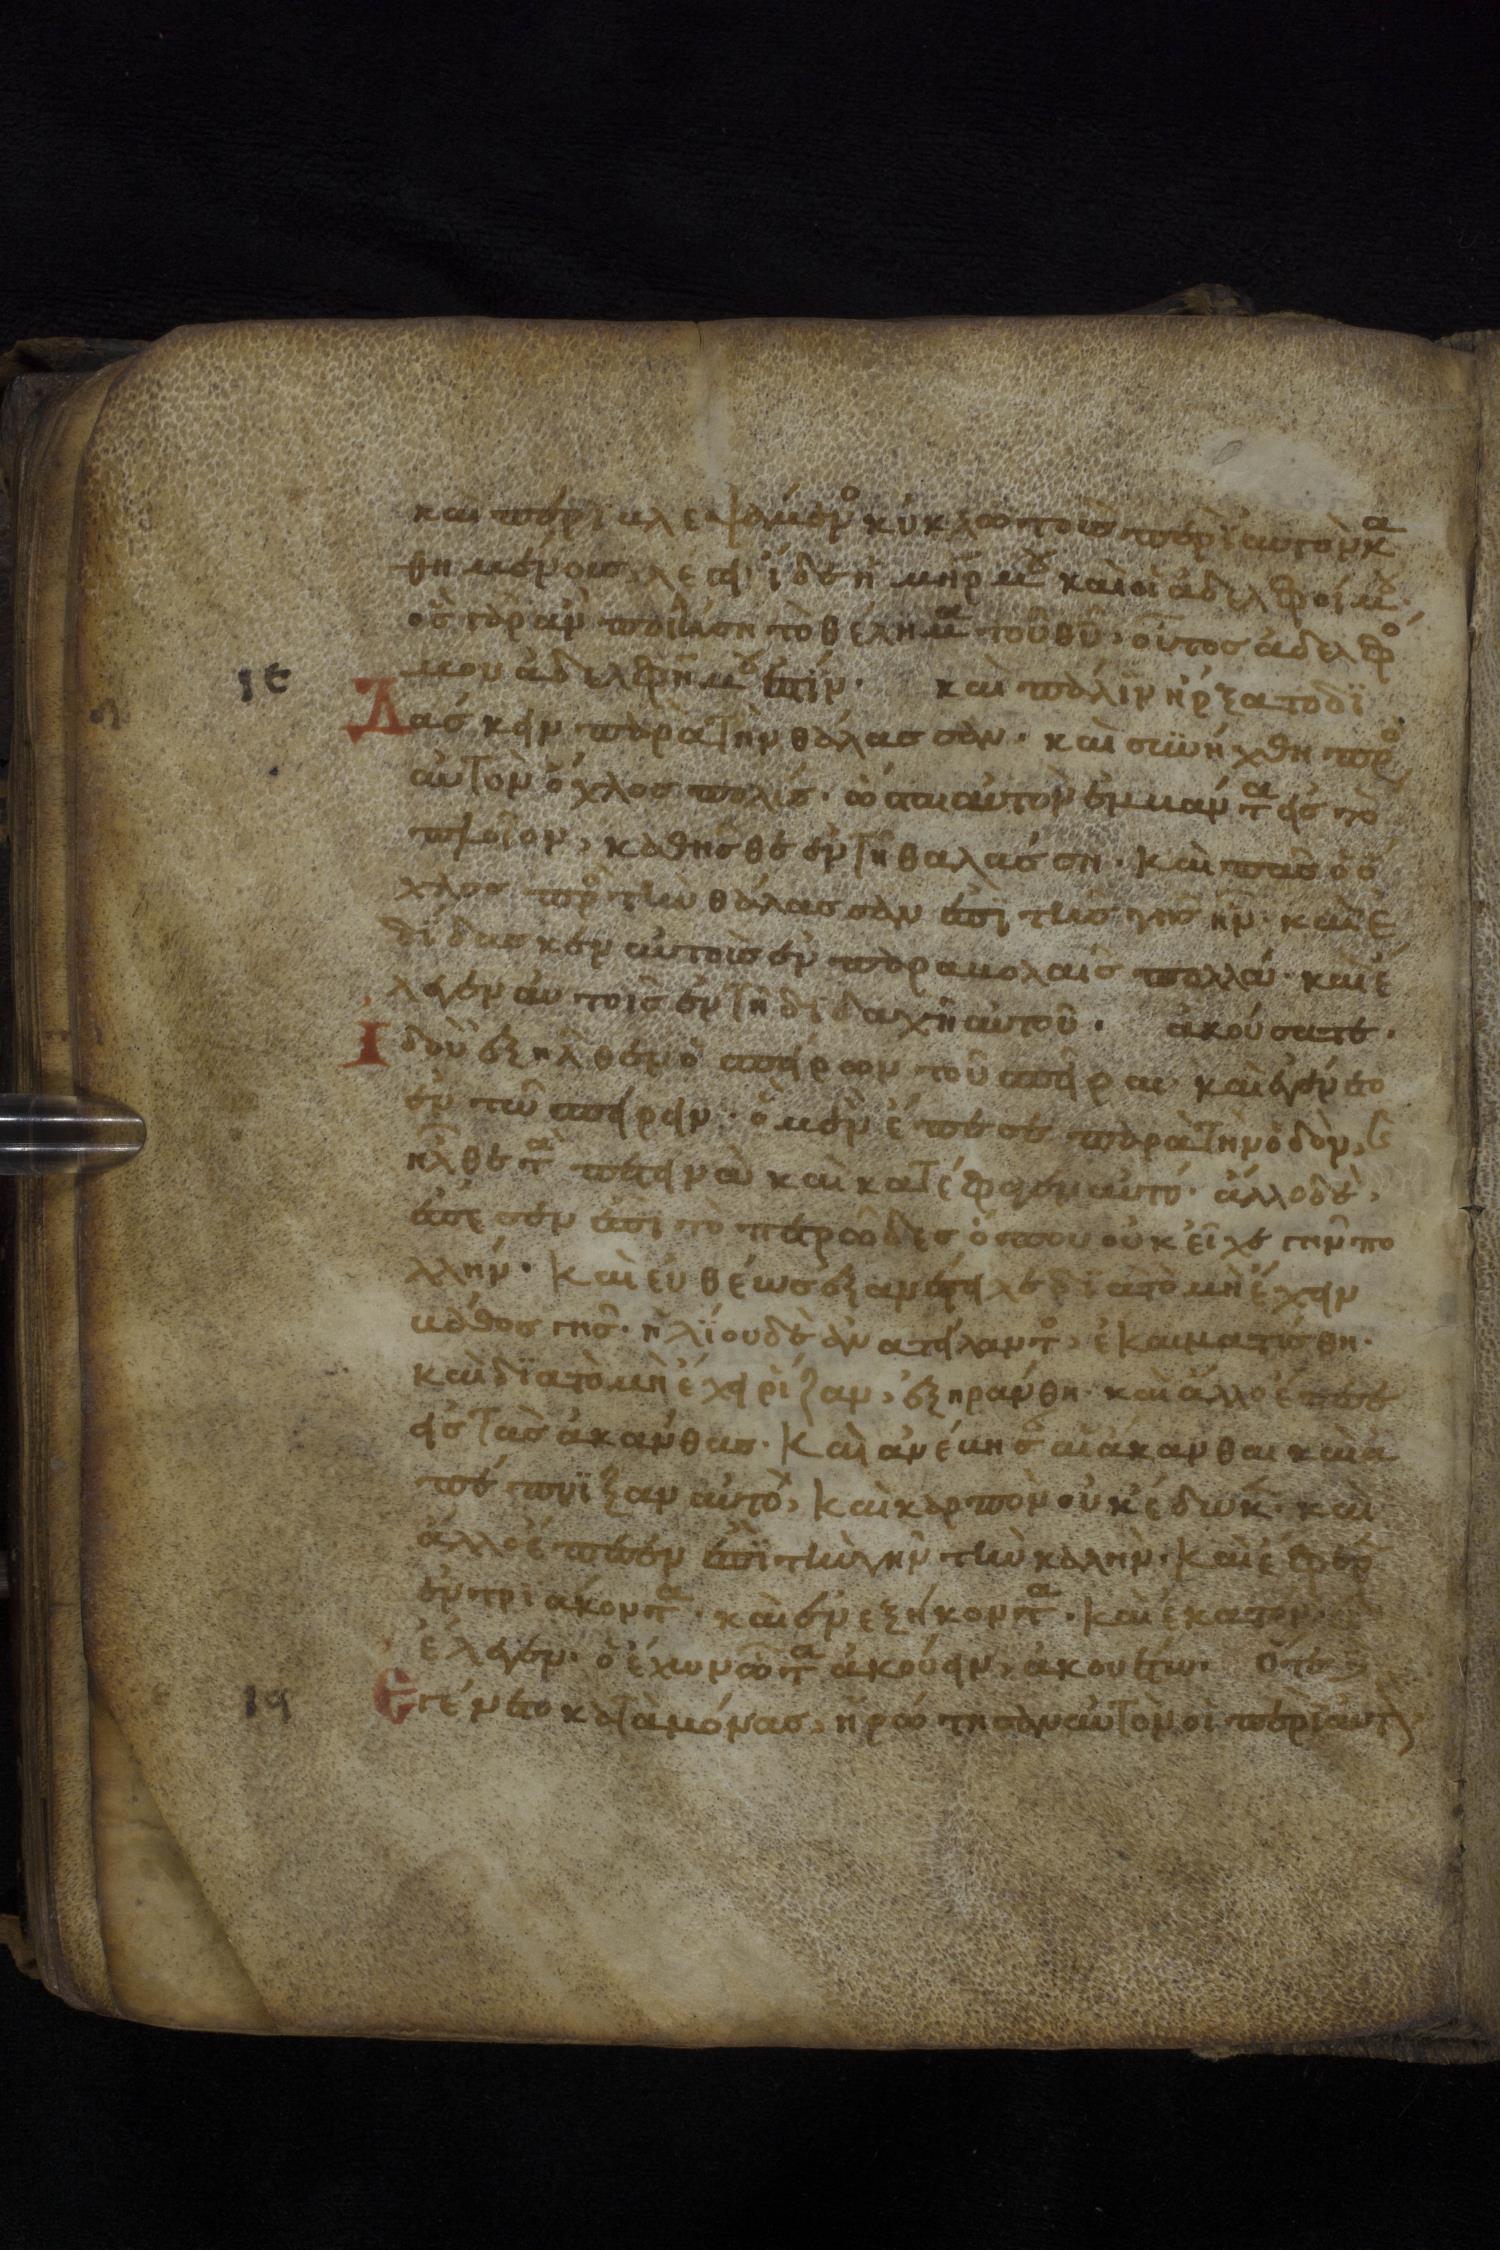 και περιβλεψάμεν ο κύκλω τοὺς περὶ αὐτὸν κα
θημένους, λέγει· ἴδε ἡ μηρ μου καὶ οἱ ἀδελφοί μου·
ὃς γὰρ ἂν ποιήση τὸ θέλημα τοῦ θυ, οὗτος ἀδελφο
ιε μου ἀδελφή μου ἐστίν· καὶ πάλιν ἤρξατο δϊ
Δάσκειν παρὰ τὴν θάλασσαν· καὶ συνήχθη προ
αὐτὸν ὄχλος πολύς· ὥστε αὐτὸν ἐμβάντα εἰς τὸ
πλοῖον, καθῆσθε ἐν τῆ θαλάσση· καὶ πᾶς ὁ ὄ
χλος προ τὴν θάλασσαν ἐπὶ τῆς γῆς ἦν· καὶ ἐ
δίδασκεν αὐτοῖς ἐν παραβολαῖς πολλά· καὶ ἔ
λεγεν αὐτοῖς ἐν τῆ διδαχῆ αὐτοῦ· ἀκούσατε·
Ἰδοὺ ἐξῆλθεν ὁ σπείρων τοῦ σπεῖραι· καὶ ἐγένετο
ἐν τῶ σπείρειν· ὁ μὲν ἔπεσε παρὰ τὴν ὁδὸν, κ
ἦλθε τὰ πετεινὰ καὶ κατέφαγεν αὐτό· ἄλλο δὲ,
ἔπεσεν ἐπὶ τὸ πετρῶδες ὅπου οὐκ εἶχε γῆν πο
λλήν· Καὶ εὐθέως ἐξανέτειλε διὰ τὸ μὴ ἔχειν
βάθος γῆς· ἡλίου δὲ ἀνατείλαντο, ἐκαυματίσθη·
καὶ διὰ τὸ μὴ ἔχει ρίζαν, ἐξηράνθη· καὶ ἄλλο ἔπεσε
εἰς τὰς ἀκάνθας· Καὶ ἀνέβησ αἱ ἄκανθαι καὶ ἀ
πέπνιξαν αὐτό, καὶ καρπὸν οὐκ ἔδωκ· καὶ
ἄλλο ἔπεσεν ἐπὶ τὴν γῆν τὴν καλήν· Καὶ ἔφερ
ἐν τριάκοντα· καὶ ἐν ἑξήκοντα· Καὶ ἑκατόν·
ἔλεγεν· ὁ ἔχων ὦτα ἀκούειν, ἀκουέτω· Ὅτε δ
ις Ἐγένετο κατὰ μόνας, ἠρώτησαν αὐτὸν οἱ περὶ αὐτ